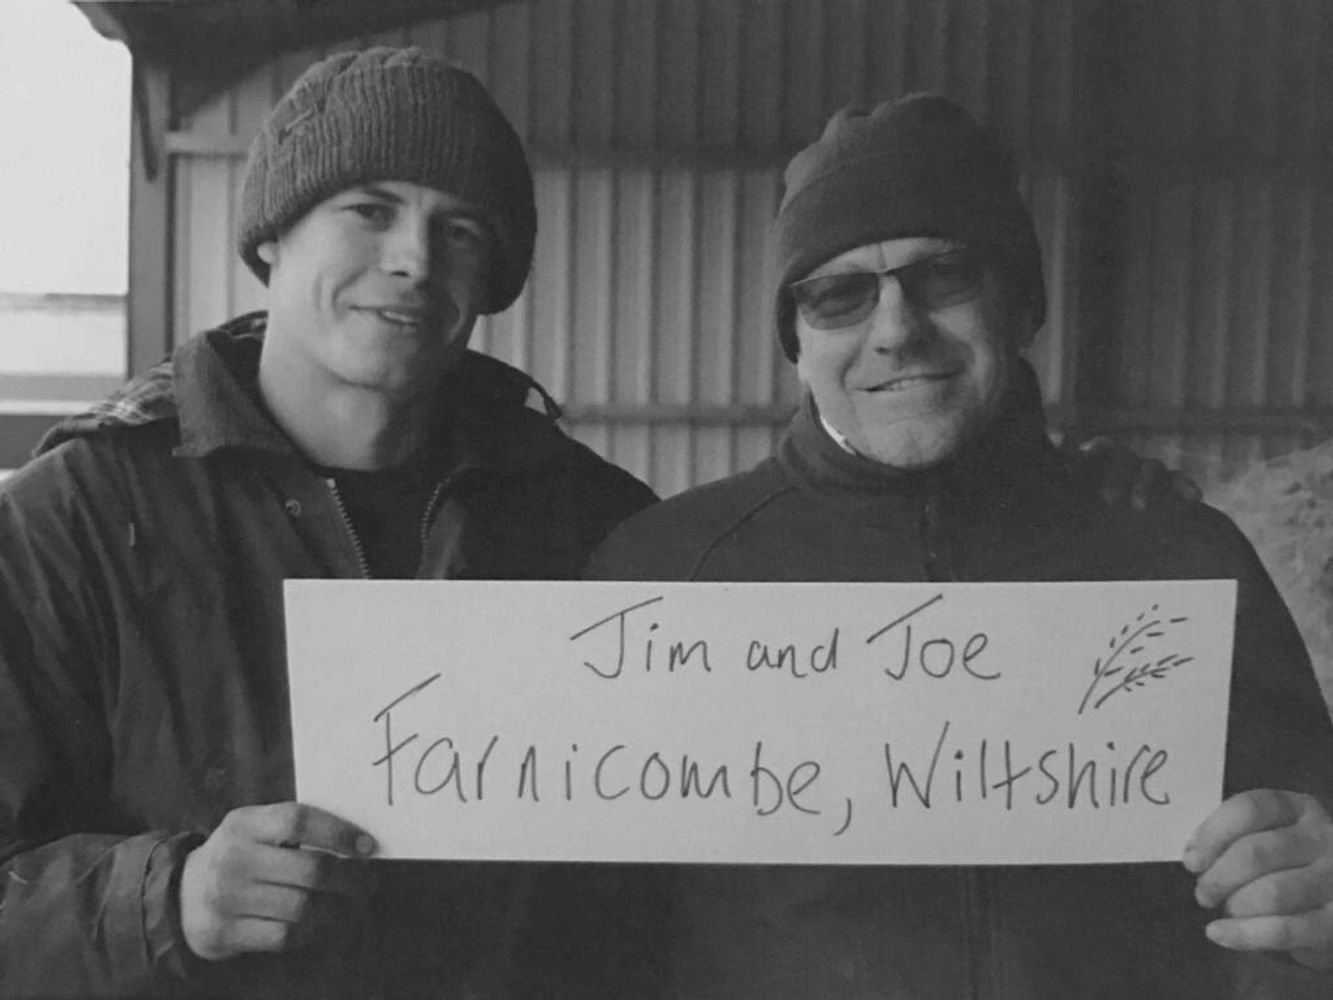 Jim and Joe
Farnicombe, Wiltshire